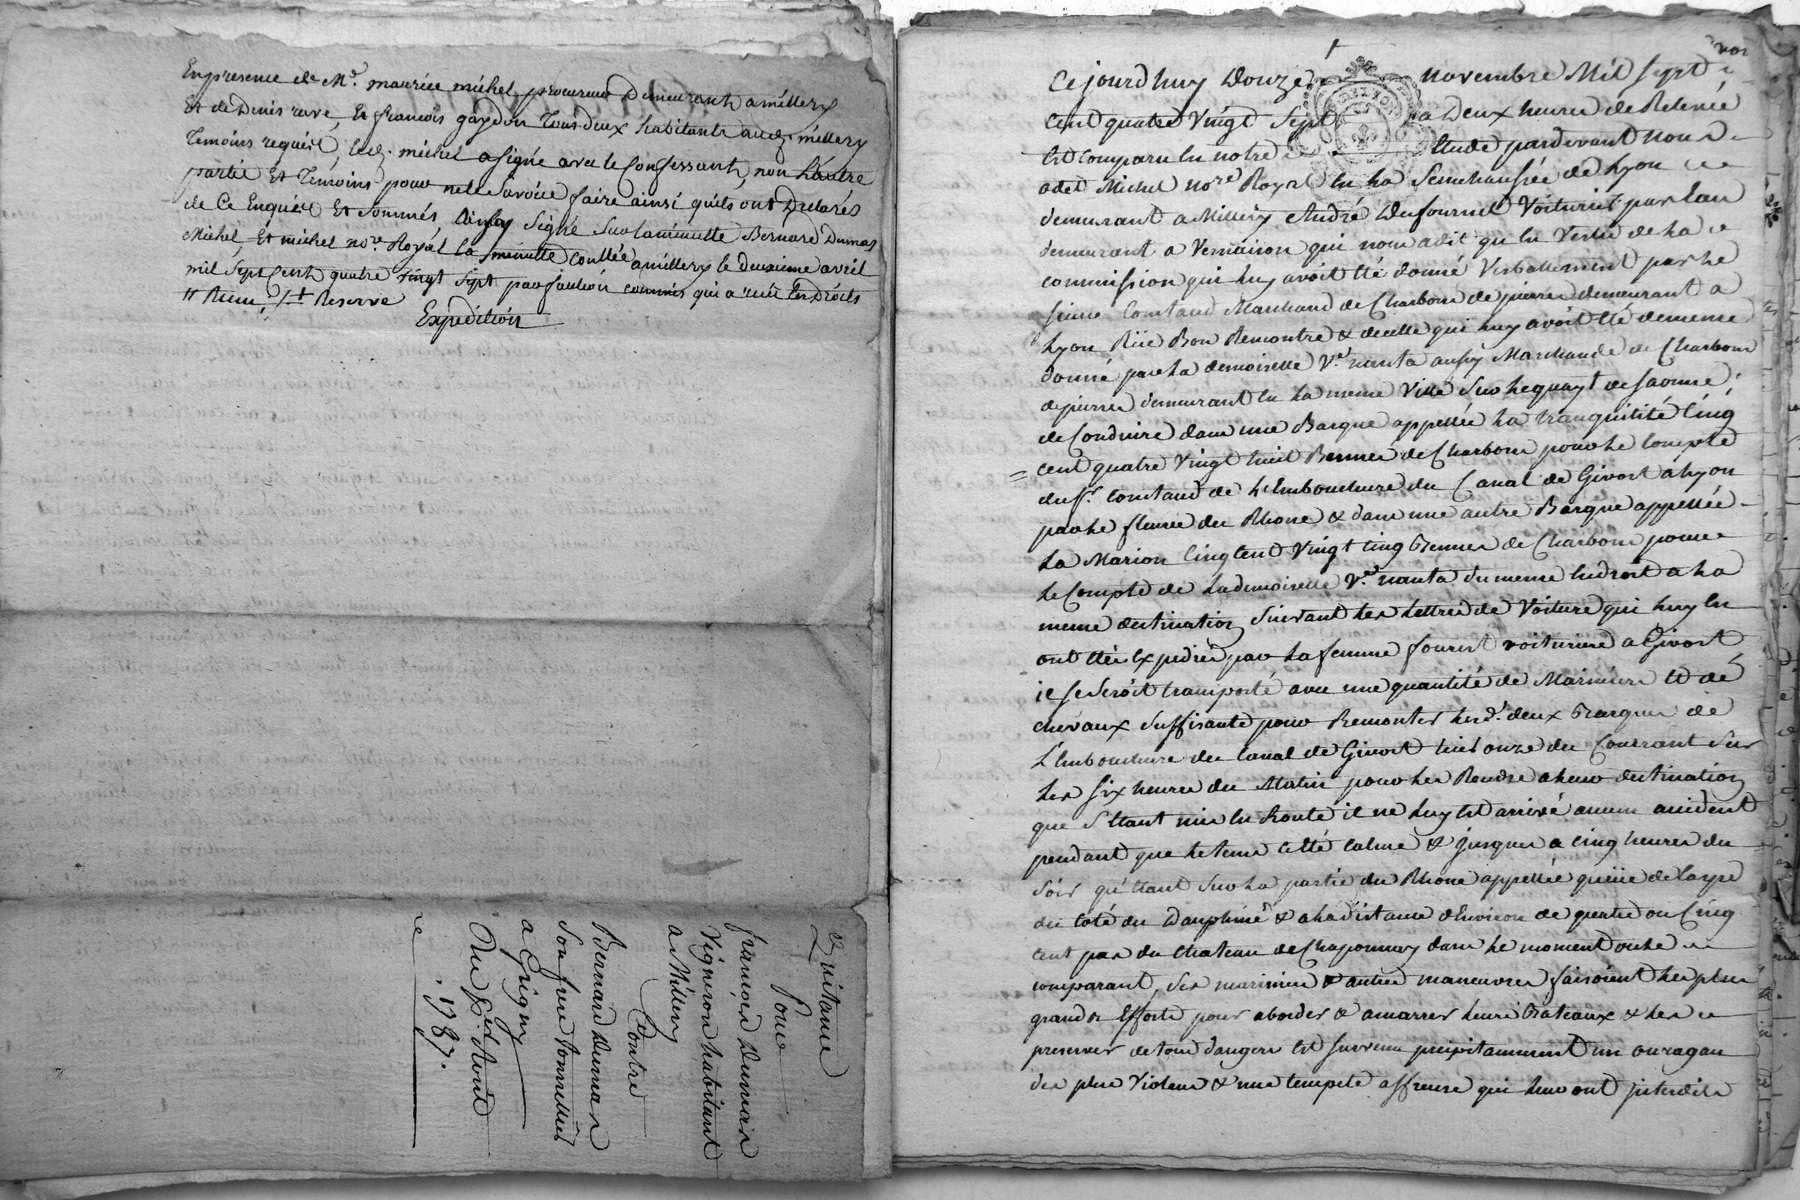 En presence de Me. maurice michel procureur Demeurant a millery
Et de Denis reve, Et francois gaydon Tous deux habitants aud. millery
Temoins requis, led. michel a signé avec le Confessant, non L'autre
partie Et Temoins pour ne le savoir faire ainsi qu'ils ont Declarés
de Ce Enquis Et sommés ainsy Signé Sur la minutte Bernard Dumas
Michel, Et michel nore. Royal la minutte coullée a millery le deuxieme avril
mil Sept Cent quatre vingt Sept par commis qui a reçu les Droits
Reserve
Expedition
Quitance
Pour
francois
Vigneron habitant
a Millery
Contre
Bernard Dumas
Son frere tonnellier
a Grigny
Du 1er. Avril
1787.
Ce jourd'huy Douze novembre Mil Sept
Cent quatre Vingt Sept a Deux heures de Relevée
Est comparu En notre Etude pardevant nous
adet Michel nore. Royal En La Senechaussée de Lyon
demeurant a Millery André Dufournel Voiturier par Eau
demeurant a Vernaison qui nous a dit qu'en Vertu de La
commission qui Luy avoit Eté donné Verballement par Le
sieur Constand Marchand de Charbons de pierres demeurant a
Lyon Rüe Bon Rencontre & de celle qui Luy avoit Eté de meme
donné par La demoiselle Ve. nanta aussy Marchande de Charbons
de pierres demeurant En La meme Ville Sur Le quay de Saonne,
de Conduire dans une Barque appellée La tranquilité Cinq
cent quatre Vingt huit Bennes de Charbons pour Le Compte
du Sr. Constand de L'Embouchure du Canal de Givort a Lyon
par Le fleuve du Rhone & dans une autre Barque appellée
La Marion Cinq Cent Vingt cinq Bennes de Charbons pour
Le Compte de La demoiselle Ve. nanta du meme Endroit a La
meme destination, Suivant Les Lettres de Voiture qui Luy En
ont Eté Expediés par La femme fourest voituriere a Givort
il se seroit transporté avec une quantité de Mariniers Et de
chevaux Suffisante pour Remonter Lesd. deux Barques de
L'Embouchure du Canal de Givort hier onze du Courant Sur
Les Six heures du Matin pour Les Rendre a Leur destination,
que S'Etant mis En Route il ne Luy Est arrivé aucun accident
pendant que Le tems a Eté Calme & jusques a cinq heures du
Soir qu'Etant Sur La partie du Rhone appellée queüe de
du Coté du Dauphiné & a La distance d'Environ de quatre ou Cinq
cent pas du Chateau de Chaponnay dans Le moment ou Le
comparant, Ses mariniers & autres maneuvres faisoient Les plus
grands Efforts pour aborder & amarrer Leurs Bateaux & Les
preserver de tous dangers Est Survenu precipitamment un ouragan
des plus Violens & une tempete affreuse qui Leur ont interdits